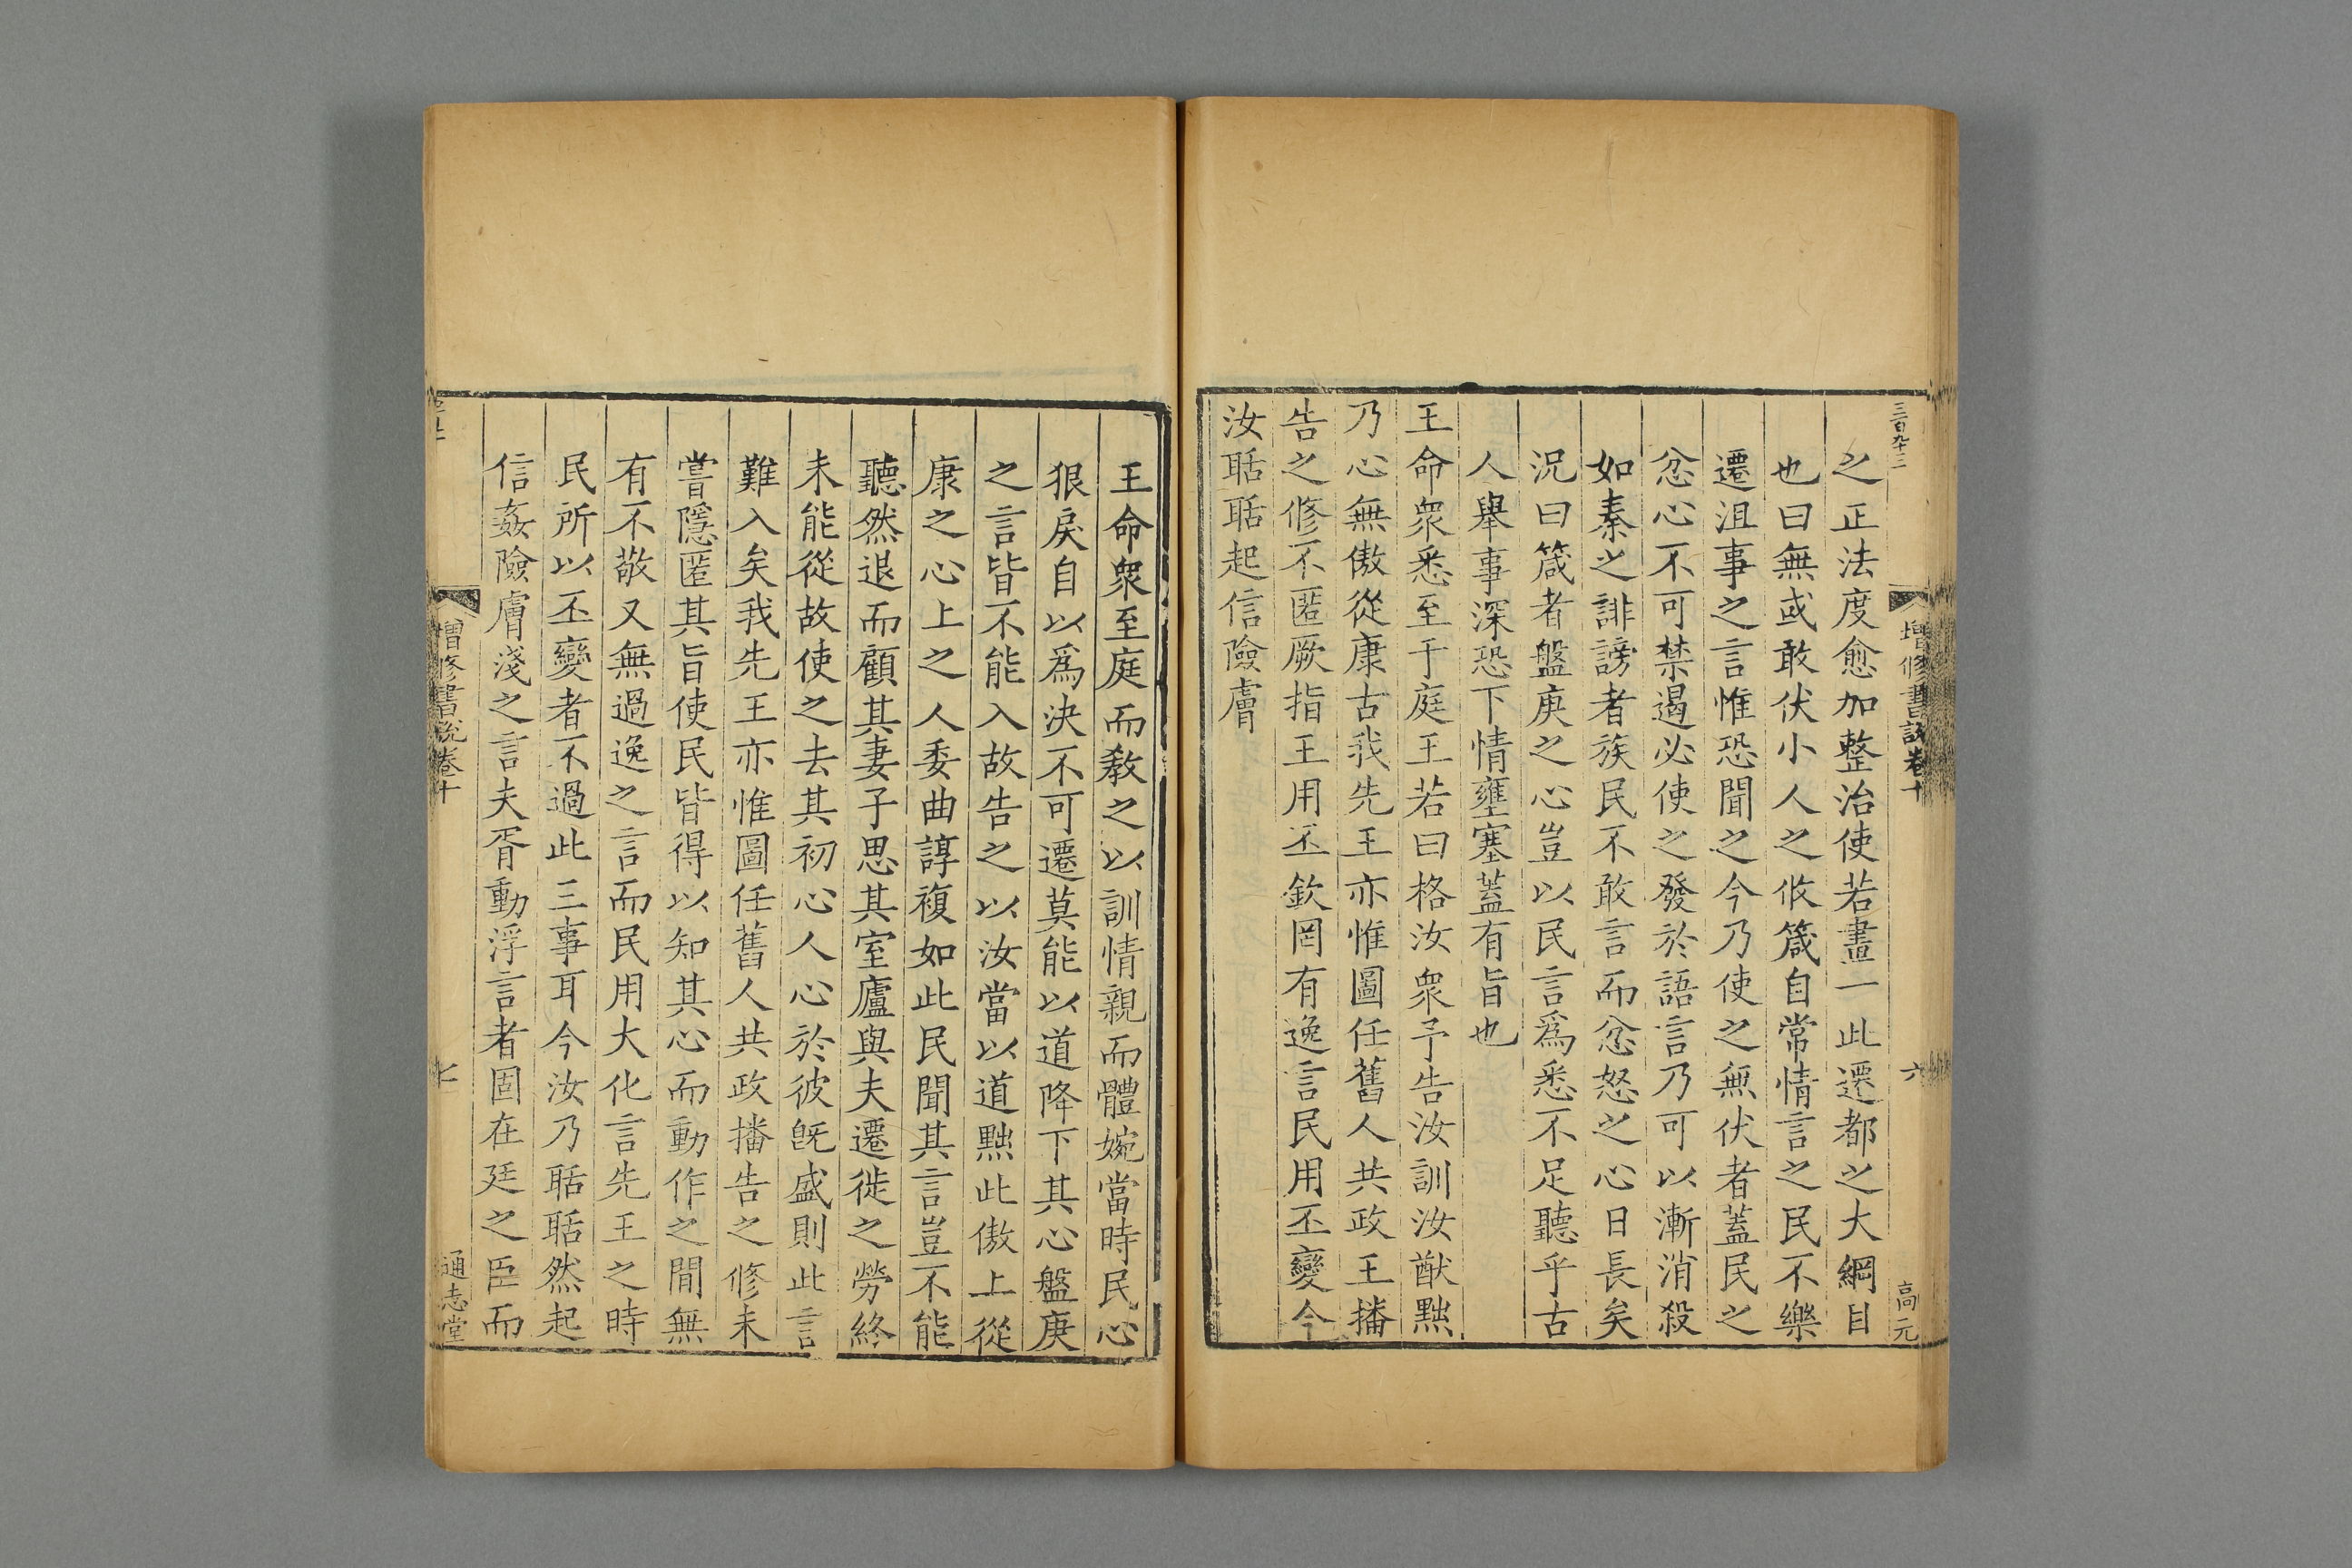 三百九十三
增修書說卷十
六
高元
之正法度愈加整治使若畫一此遷都之大綱目
也曰無或敢伏小人之攸箴自常情言之民不樂
遷沮事之言惟恐聞之今乃使之無伏者蓋民之
忿心不可禁遏必使之發於語言乃可以漸消殺
如秦之誹謗者族民不敢言而忿怒之心日長矣
況曰箴者盤庚之心豈以民言爲悉不足聽乎古
人舉事深恐下情壅塞蓋有旨也
王命衆悉至于庭王若曰格汝衆予告汝訓汝猷黜
乃心無傲從康古我先王亦惟圖任舊人共政王播
告之修不匿厥指王用丕欽罔有逸言民用丕變今
汝聒聒起信險膚
王命衆至庭而教之以訓情親而體婉當時民心
狠戾自以爲決不可遷莫能以道降下其心盤庚
之言皆不能入故告之以汝當以道黜此傲上從
康之心上之人委曲諄複如此民聞其言豈不能
聽然退而顧其妻子思其室廬與夫遷徙之勞終
未能從故使之去其初心人心於彼旣盛則此言
難入矣我先王亦惟圖任舊人共政播告之修未
嘗隱匿其旨使民皆得以知其心而動作之間無
有不敬又無過逸之言而民用大化言先王之時
民所以丕變者不過此三事耳今汝乃聒聒然起
信姦險膚淺之言夫胥動浮言者固在廷之臣而
增修書說卷十
七
通志堂